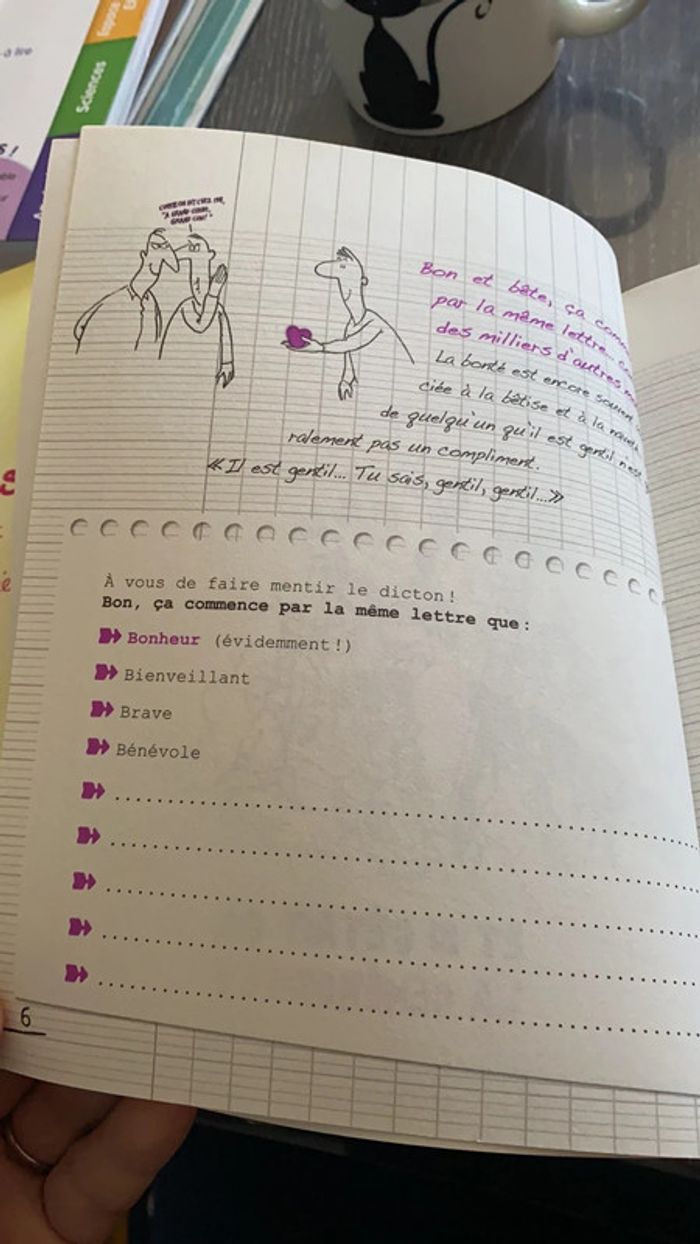 à lire
Espace
Sciences
S !
COMME ON DIT CHEZ MOI,
"À GRAND CŒUR,
GRAND CON!".
Bon et bête, ça
par la même lettre...
des milliers d'autres
La bonté est encore souvent
ciée à la bêtise et à la
de quelqu'un qu'il est gentil n'est
ralement pas un compliment.
«Il est gentil... Tu sais, gentil, gentil...»
À vous de faire mentir le dicton !
Bon, ça commence par la même lettre que :
Bonheur (évidemment !)
Bienveillant
Brave
Bénévole
6